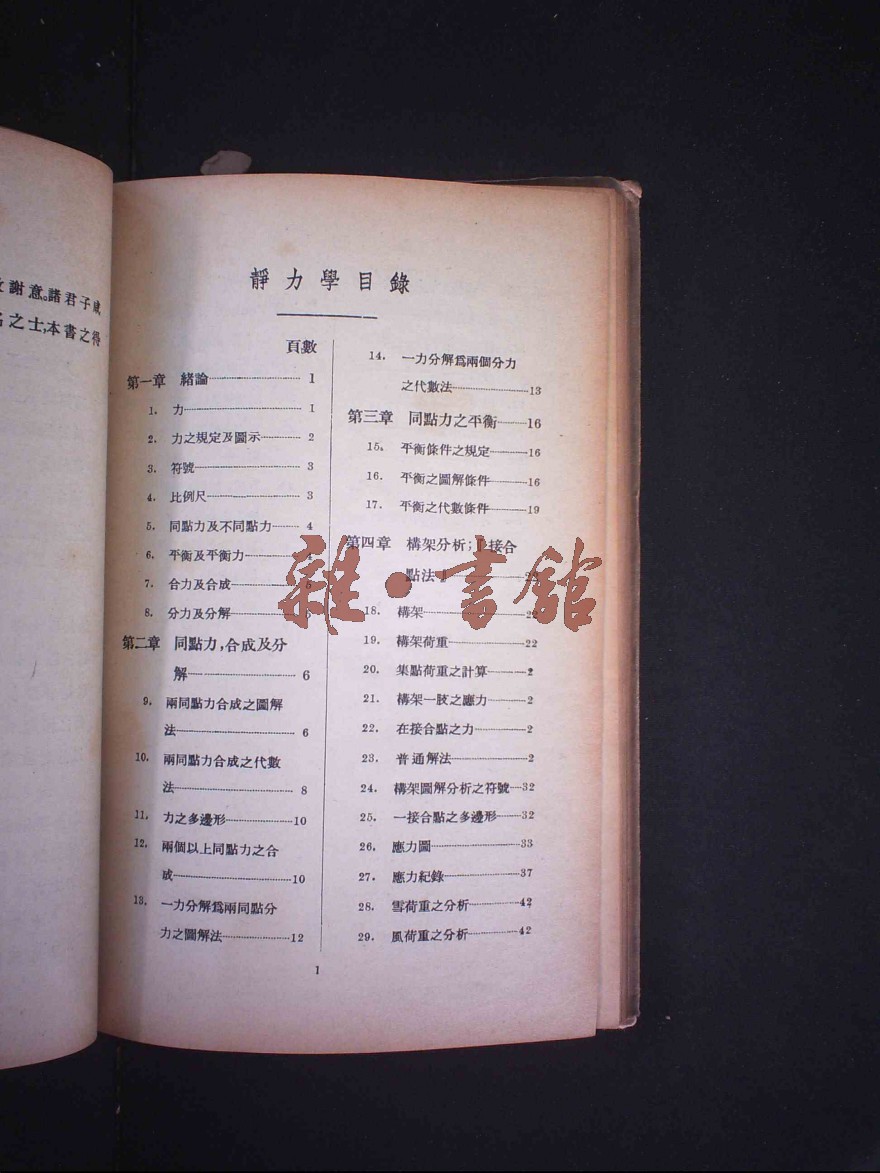 謝意。諸君子咸
之士,本書之得
靜力學目錄
頁數
第一章 緒論 1
1. 力 1
2. 力之規定及圖示 2
3. 符號 3
4. 比例尺 3
5. 同點力及不同點力 4
6. 平衡及平衡力 4
7. 合力及合成
8. 分力及分解
第二章 同點力,合成及分
解 6
9. 兩同點力合成之圖解
法 6
10. 兩同點力合成之代數
法 8
11. 力之多邊形 10
12. 兩個以上同點力之合
成 10
13. 一力分解爲兩同點分
力之圖解法 12
14. 一力分解爲兩個分力
之代數法 13
第三章 同點力之平衡 16
15. 平衡條件之規定 16
16. 平衡之圖解條件 16
17. 平衡之代數條件 19
第四章 構架分析;「接合
點法」
18. 構架
19. 構架荷重 22
20. 集點荷重之計算 2
21. 構架一肢之應力 2
22. 在接合點之力 2
23. 普通解法 2
24. 構架圖解分析之符號 32
25. 一接合點之多邊形 32
26. 應力圖 33
27. 應力紀錄 37
28. 雪荷重之分析 42
29. 風荷重之分析 42
1
雜·書館